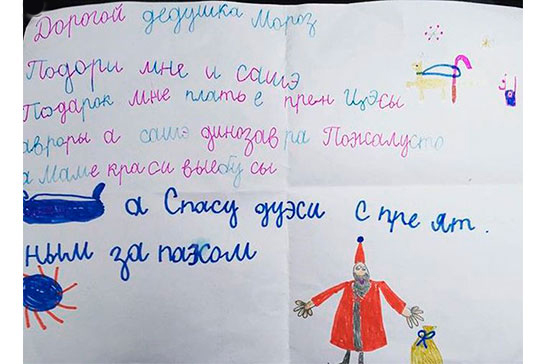 Дорогой дедушка Мороз
Подори мне и сашэ
Подарок мне платье прен Цэсы
авроры а сашэ динозавра Пожалусто
а Маме краси выебусы
а Спасу дуэси с пре ят.
ным запахом